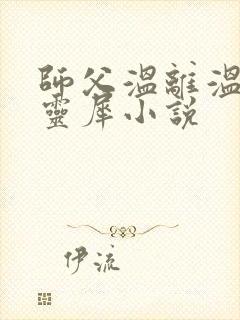 師父溫離溫
靈犀小說
伊流